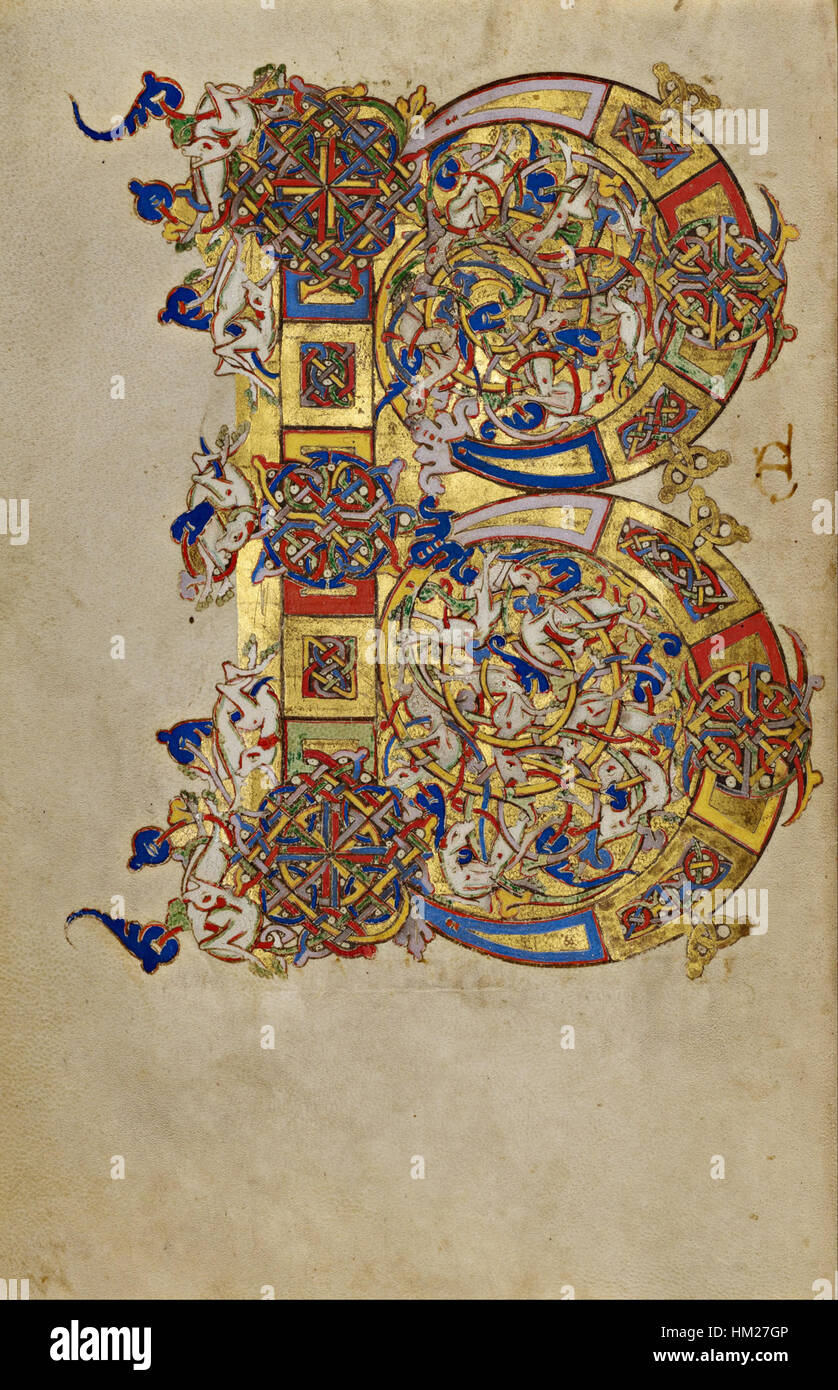 B
alamy
Image ID: HM27GP
www.alamy.com